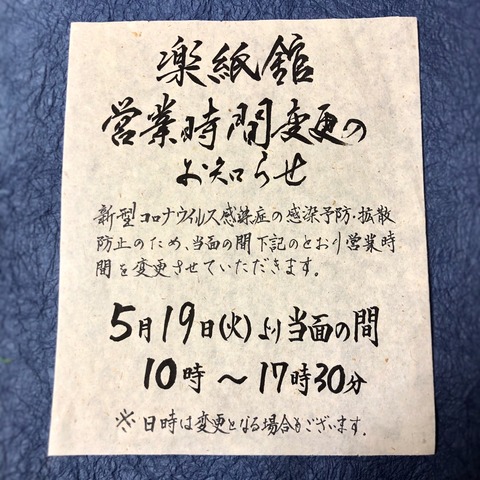 楽紙館
営業時間変更の
お知らせ
新型コロナウイルス感染症の感染予防・拡散
防止のため、当面の間下記のとおり営業時
間を変更させていただきます。
5月19日(火)より当面の間
10時〜17時30分
※日時は変更となる場合もございます。